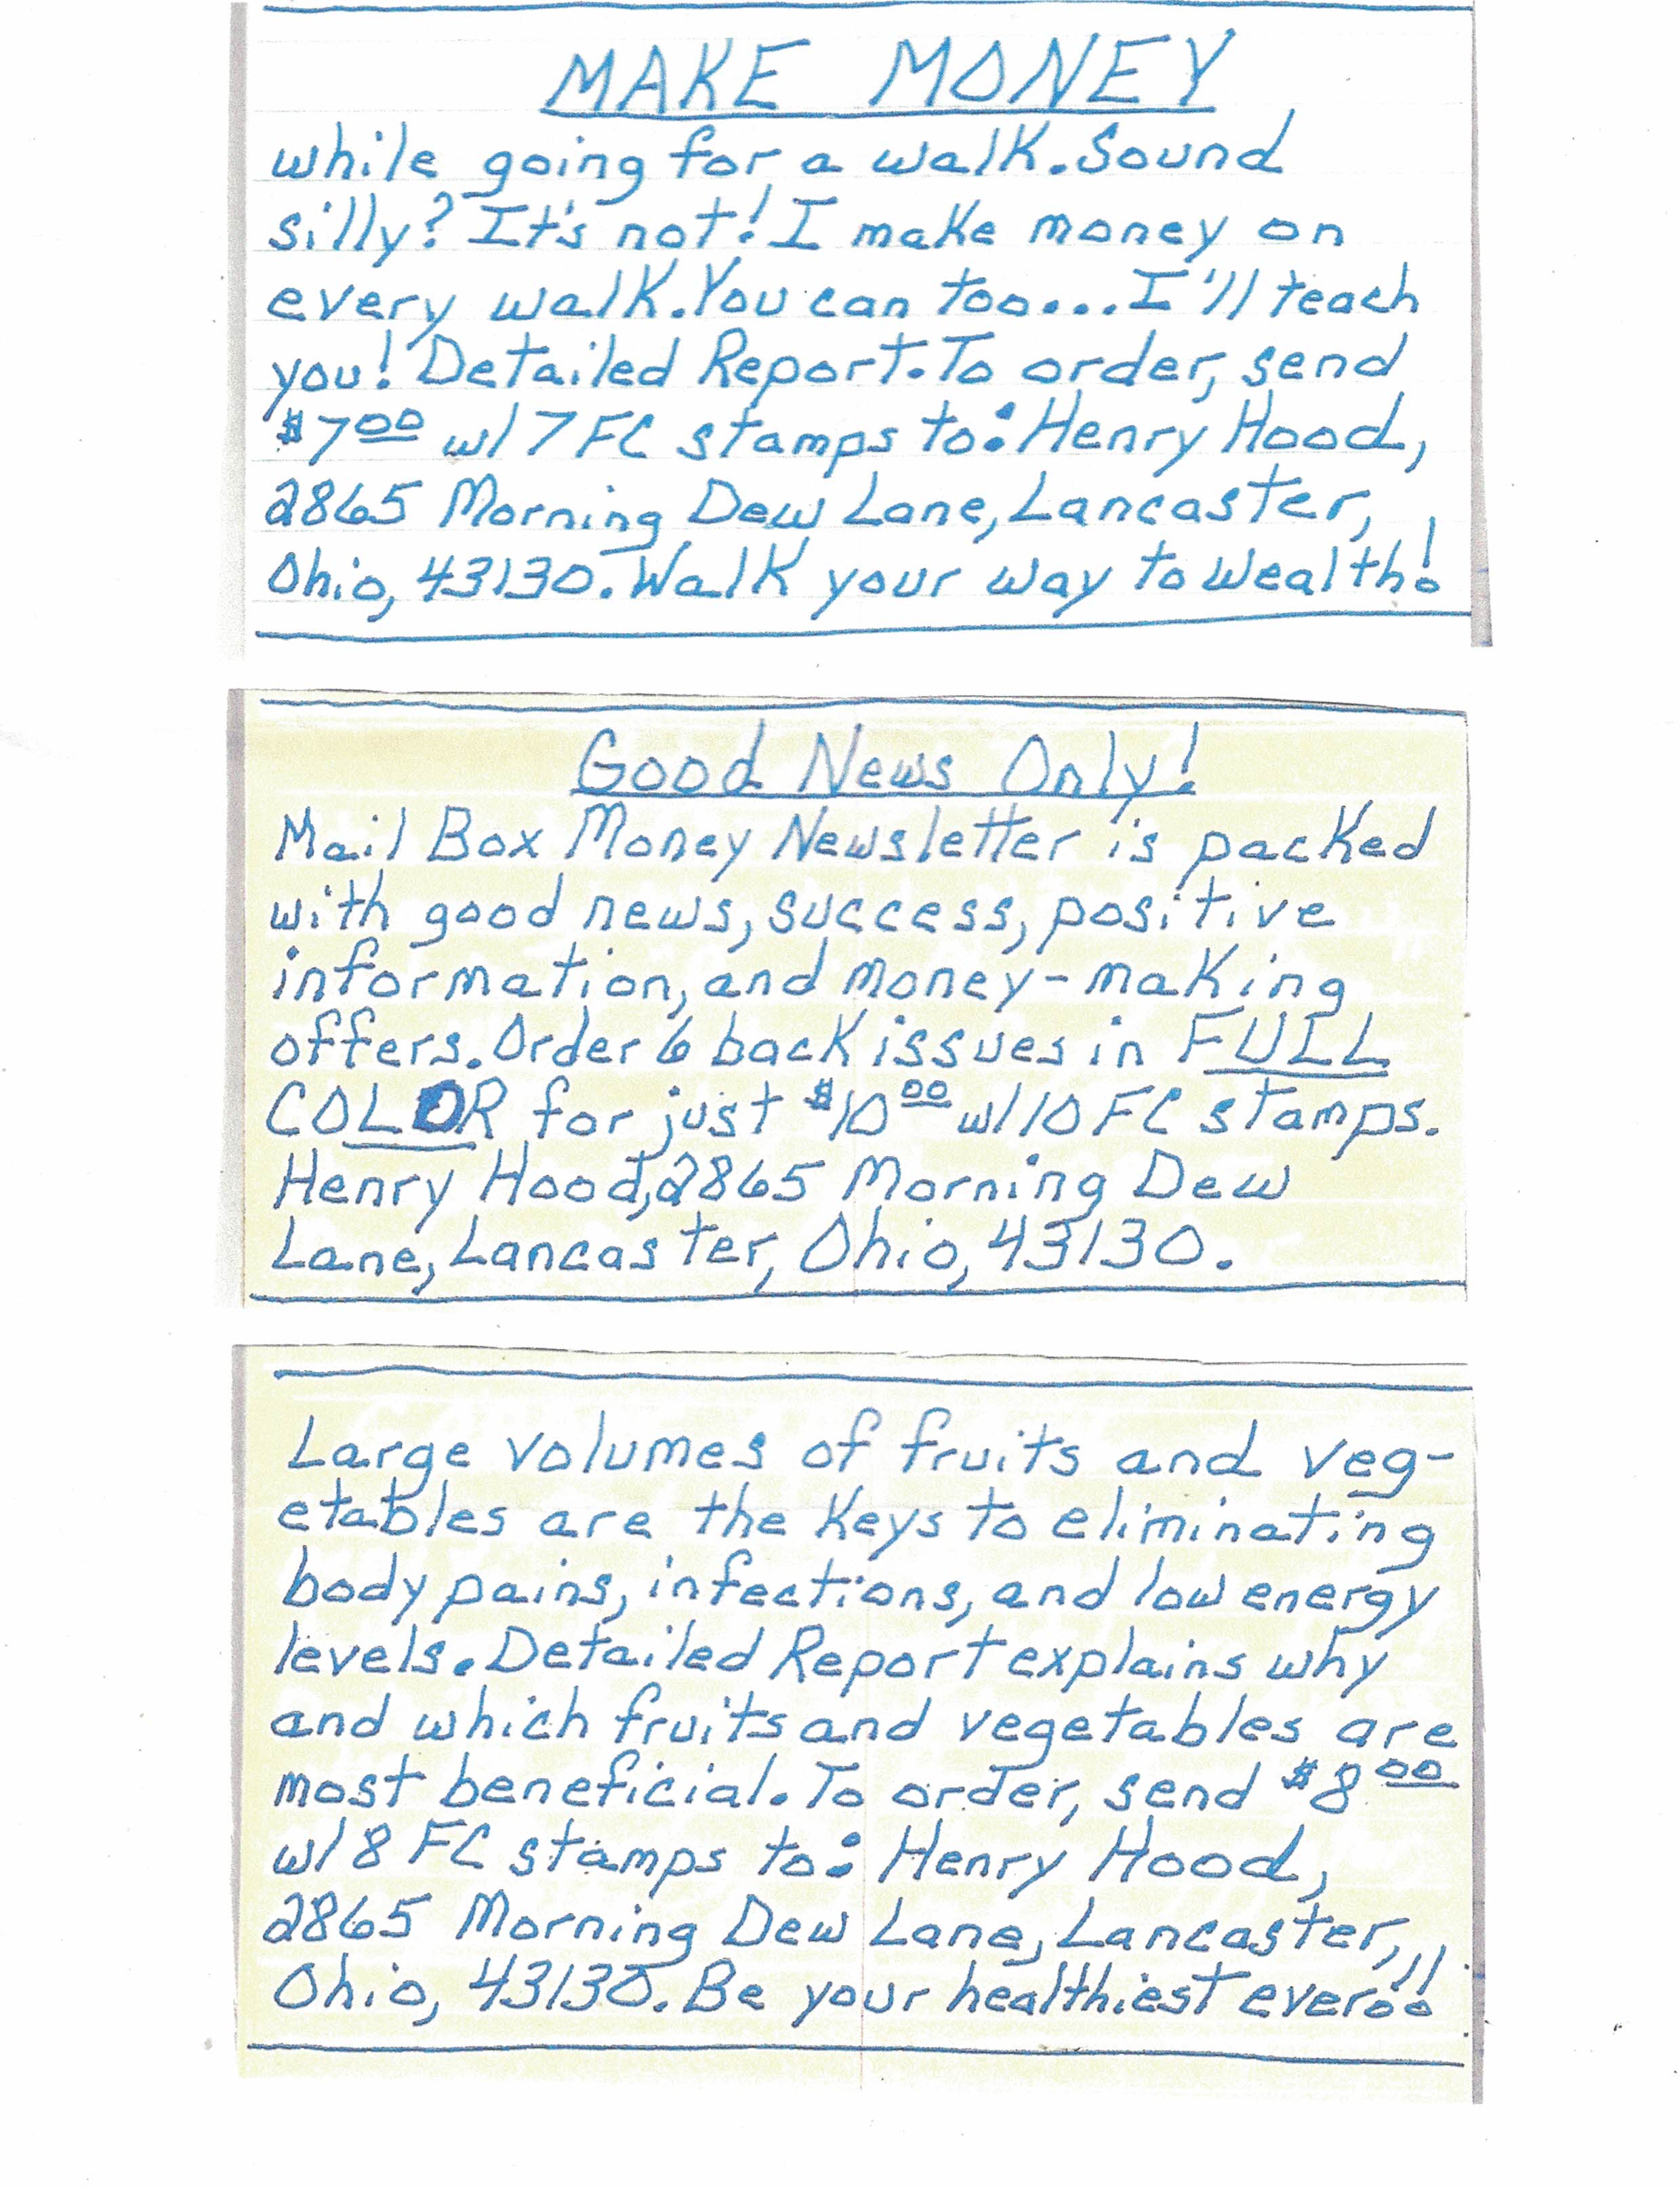 MAKE MONEY
while going for a walk. Sound
silly? It's not! I make money on
every walk. You can too....I'll teach
you! Detailed Report. To order, send
$7.00 w/ 7 FC stamps to: Henry Hood,
2865 Morning Dew Lane, Lancaster,
Ohio, 43130. Walk your way to wealth!
Good News Only!
Mail Box Money Newsletter is packed
with good news, success, positive
information, and money-making
offers. Order 6 back issues in FULL
COLOR for just $10.00 w/ 10 FC stamps.
Henry Hood, 2865 Morning Dew
Lane, Lancaster, Ohio, 43130.
Large volumes of fruits and veg-
etables are the keys to eliminating
body pains, infections, and low energy
levels. Detailed Report explains why
and which fruits and vegetables are
most beneficial. To order, send $8.00
w/ 8 FC stamps to: Henry Hood,
2865 Morning Dew Lane, Lancaster,
Ohio, 43130. Be your healthiest ever!!